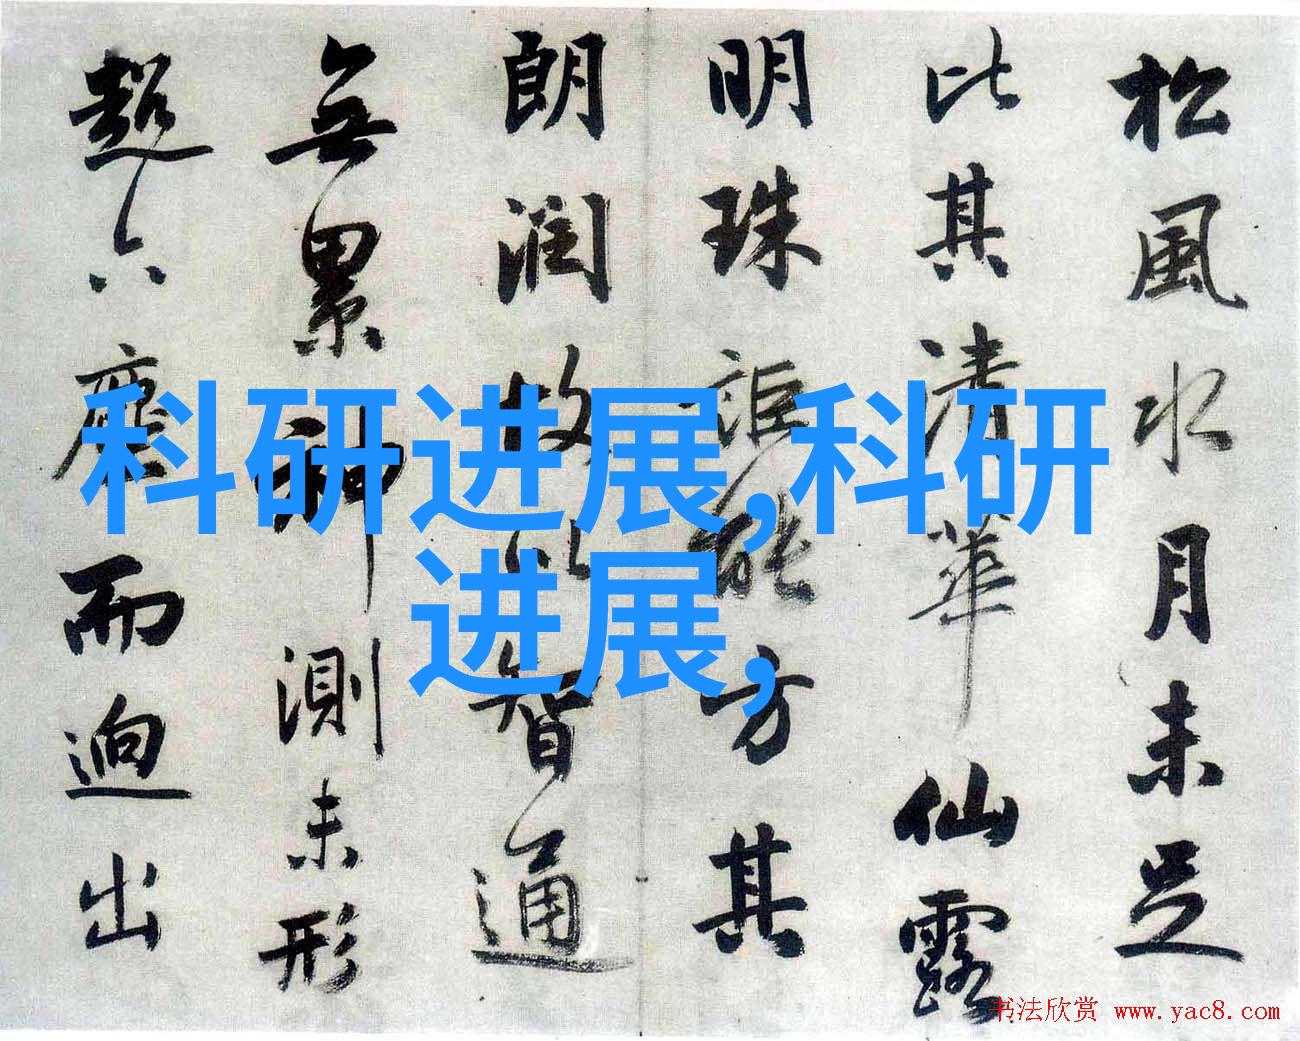 松風水月未足
比其清華仙露
明珠詎能方其
朗润故以智通
無累神測未形
超六塵而迥出
科研进展,科研
进展,
书法欣赏 www.yac8.com